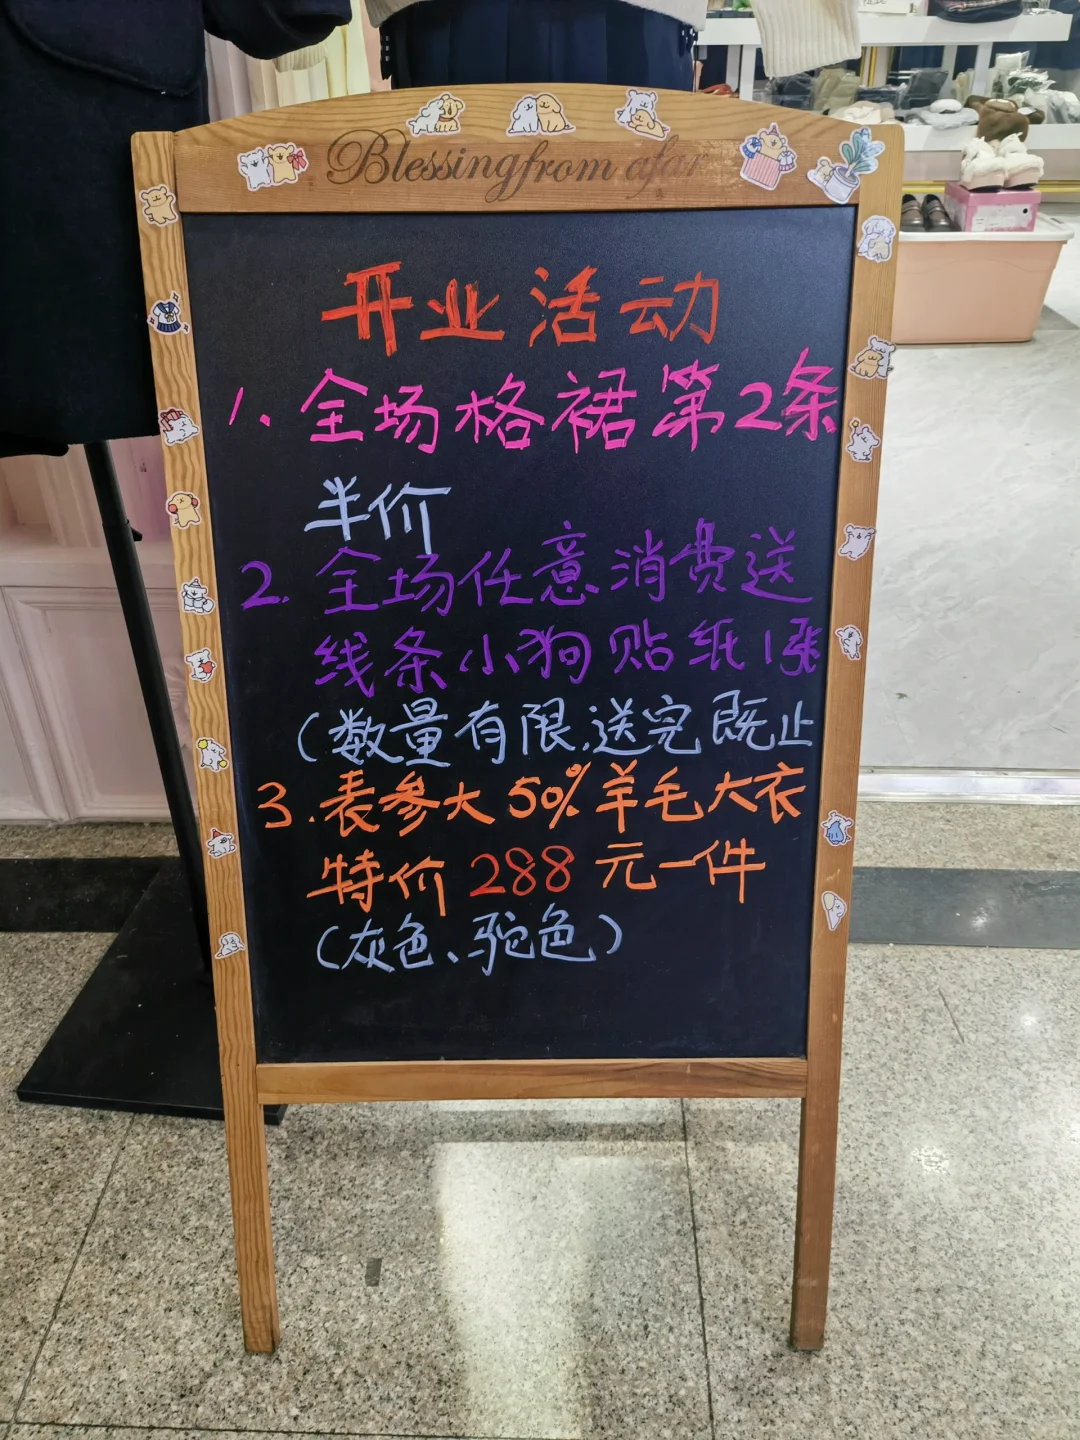 Blessing from afar
开业活动
1、全场格裙第2条
半价
2.全场任意消费送
线条小狗贴纸1张
(数量有限,送完既止
3.表参大50%羊毛大衣
特价288元一件
(灰色、驼色)